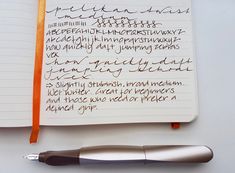 pelikan twist
medium
ABCDEFGHIJKLMNOPQRSTUVWXYZ
abcdefghijklmnopqrstuvwxyz
how quickly daft jumping zebras
vex
how quickly daft
jumping zebras
vex
→ Slightly stubbish, broad medium.
Wet writer. Great for beginners
and those who need or prefer a
defined grip.